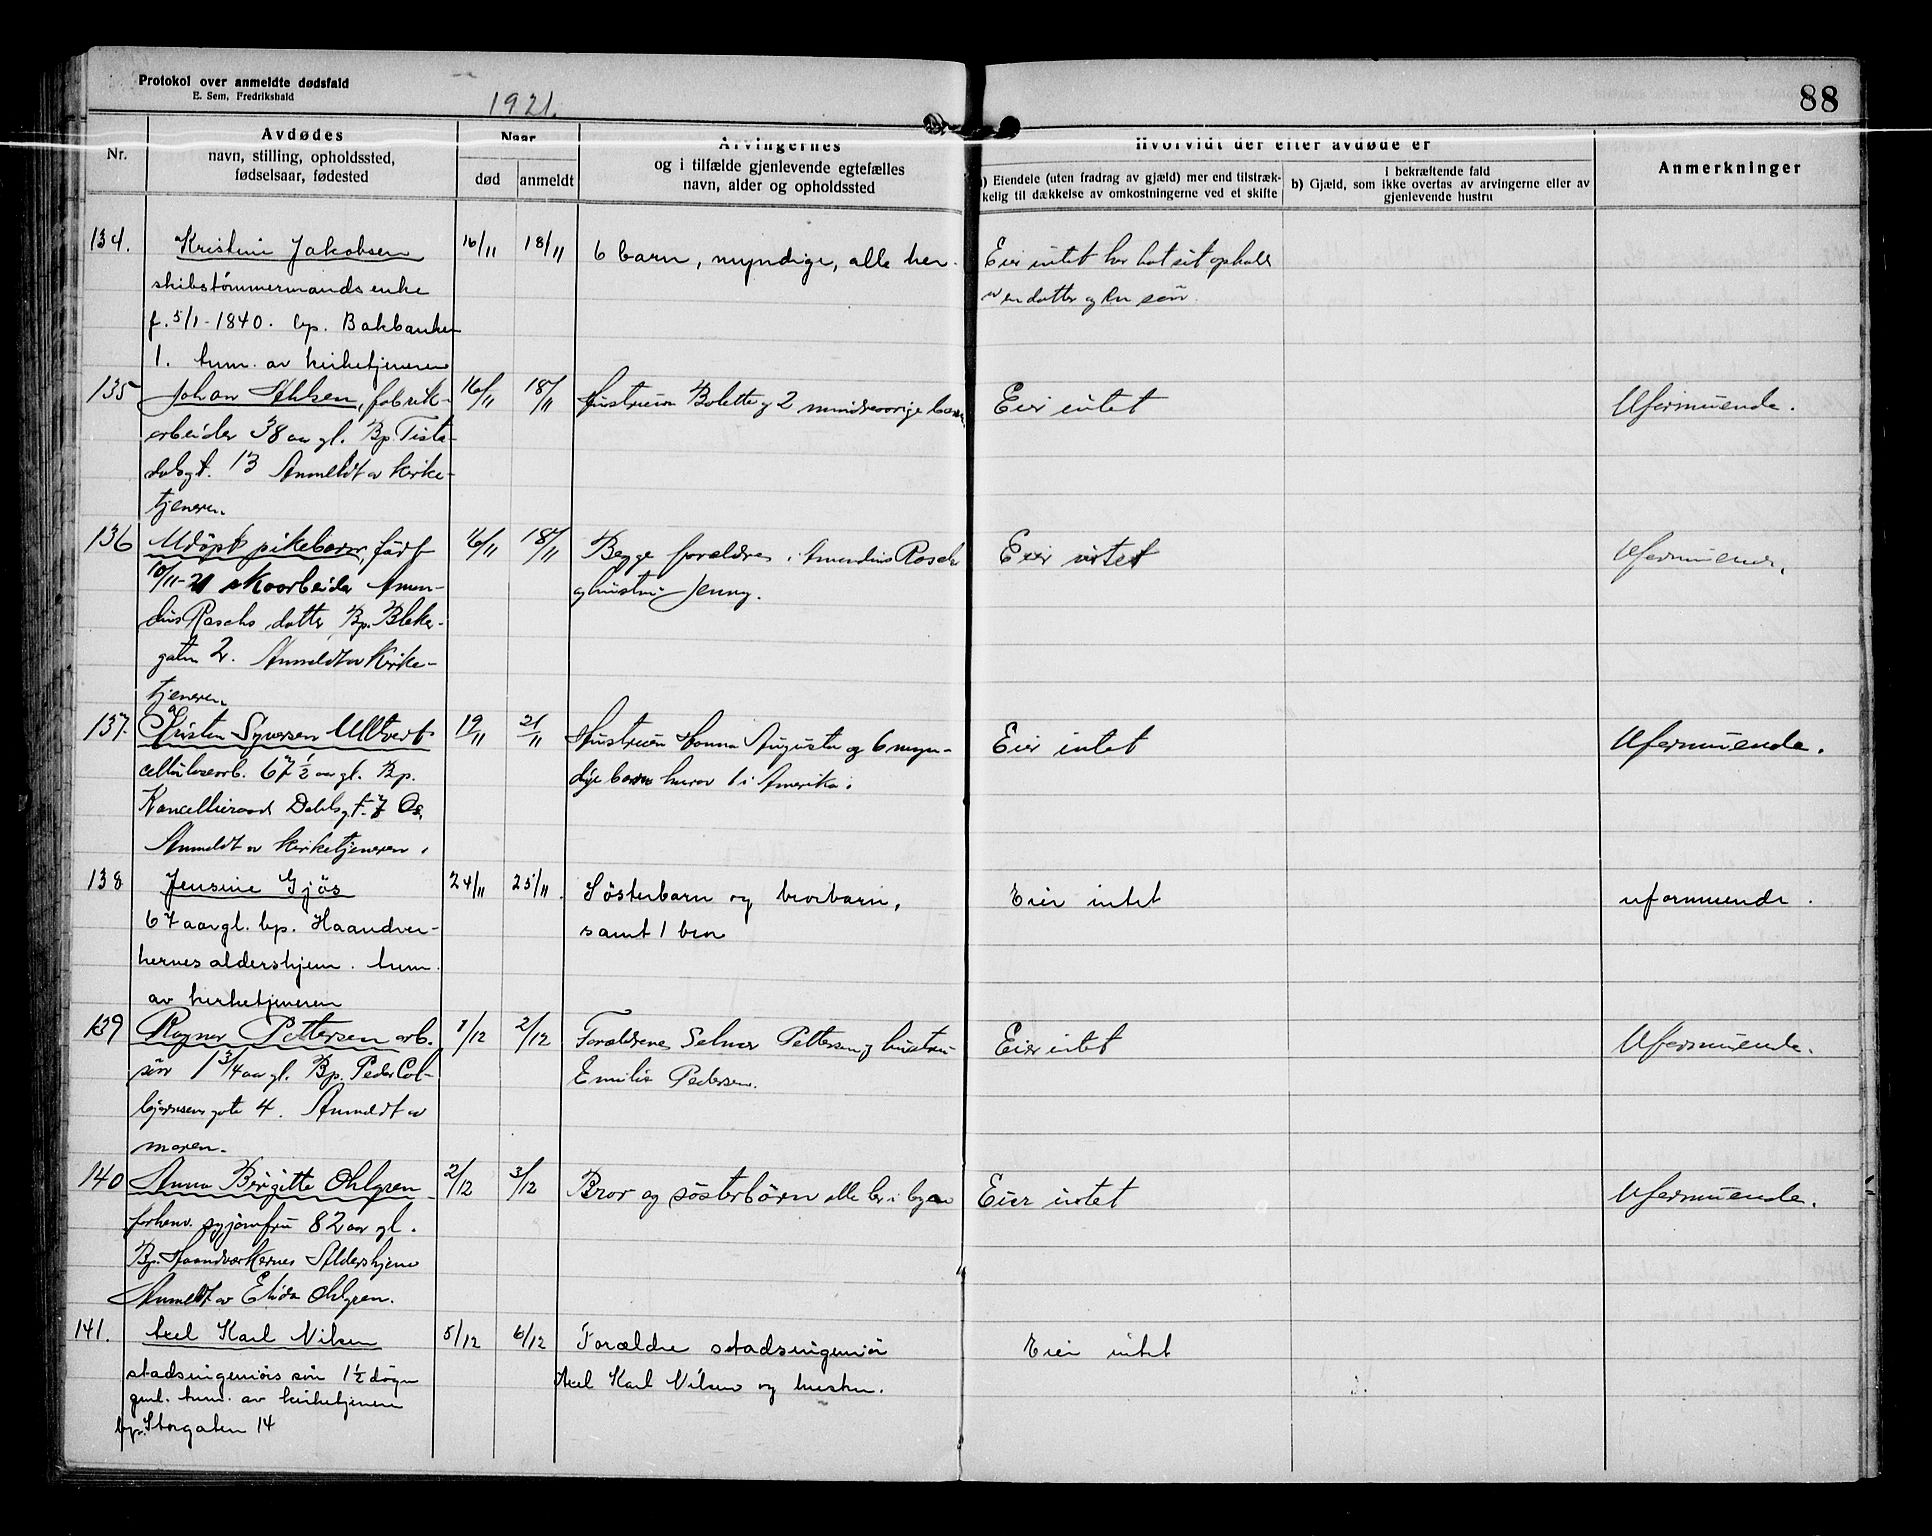 Protokol over anmeldte dødsfald
E. Sem, Fredrikshald
1921.
88
Nr.
Avdødes
navn, stilling, opholdssted,
fødselsaar, fødested
Naar
død
anmeldt
Arvingernes
og i tilfælde gjenlevende egtefælles
navn, alder og opholdssted
Hvorvidt der efter avdøde er
a) Eiendele (uten fradrag av gjæld) mer end tilstræk-
kelig til dækkelse av omkostningerne ved et skifte
I bekræftende fald
b) Gjæld, som ikke overtas av arvingerne eller av
gjenlevende hustru
Anmerkninger
134. Kristine Jakobsen 16/11 18/11 6 barn, myndige, alle her. Eier intet har hat sit ophold
skibstømmermands enke av en datter og en søn.
f. 5/1-1840. bp. Bakbanken
1. anm. av kirketjeneren
135 Johan Ahlsen, fabrik- 16/11 18/11 Hustruen Bolette og 2 mindreaarige barn Eier intet Uformuende.
arbeider 38 aar gl. Bp. Tista-
dalsgt. 13 Anmeldt av kirke-
tjeneren.
136 Udøpt pikebarn, født 16/11 18/11 Begge forældre, Amandus Rasch Eier intet Uformuende.
10/11-21 skoarbeider Aman-
og hustru Jenny.
dus Raschs datter, Bp. Bleker-
gaten 2. Anmeldt av Kirke-
tjeneren.
137. Kristen Syversen Ulltveit 19/11 21/11 Hustruen Hanna Augusta og 6 myn- Eier intet Uformuende.
cellulosearb. 67 1/2 aar gl. Bp. dige barn hvorav 1 i Amerika.
Kancelliraad Dahlsgt. 7 Os.
Anmeldt av kirketjeneren.
138 Jensine Gjøs 24/11 25/11. Søsterbarn og brorbarn, Eier intet uformuende.
67 aar gl. bp. Haandver- samt 1 bror
kernes aldershjem. anm.
av kirketjeneren
139 Ragnar Pettersen arb. 1/12 2/12 Forældrene Selmer Pettersen og hustru Eier intet Uformuende.
søn 1 3/4 aar gl. Bp. Peder Col- Emilie Pedersen.
bjørnsens gate 4. Anmeldt av
moren.
140 Anna Birgitte Ohlgren 2/12 3/12 Bror og søsterbørn alle her i byen Eier intet Uformuende.
forhenv. syjomfru 82 aar gl.
Bp. Haandværkernes Aldershjem
Anmeldt av Elida Ohlgren.
141. Axel Karl Nilsen 5/12 6/12 Forældre stadsingeniør Eier intet
stadsingeniørs søn 1 1/2 døgn Axel Karl Nilsen og hustru.
gml. anm. av kirketjeneren
bp. Storgaten 14